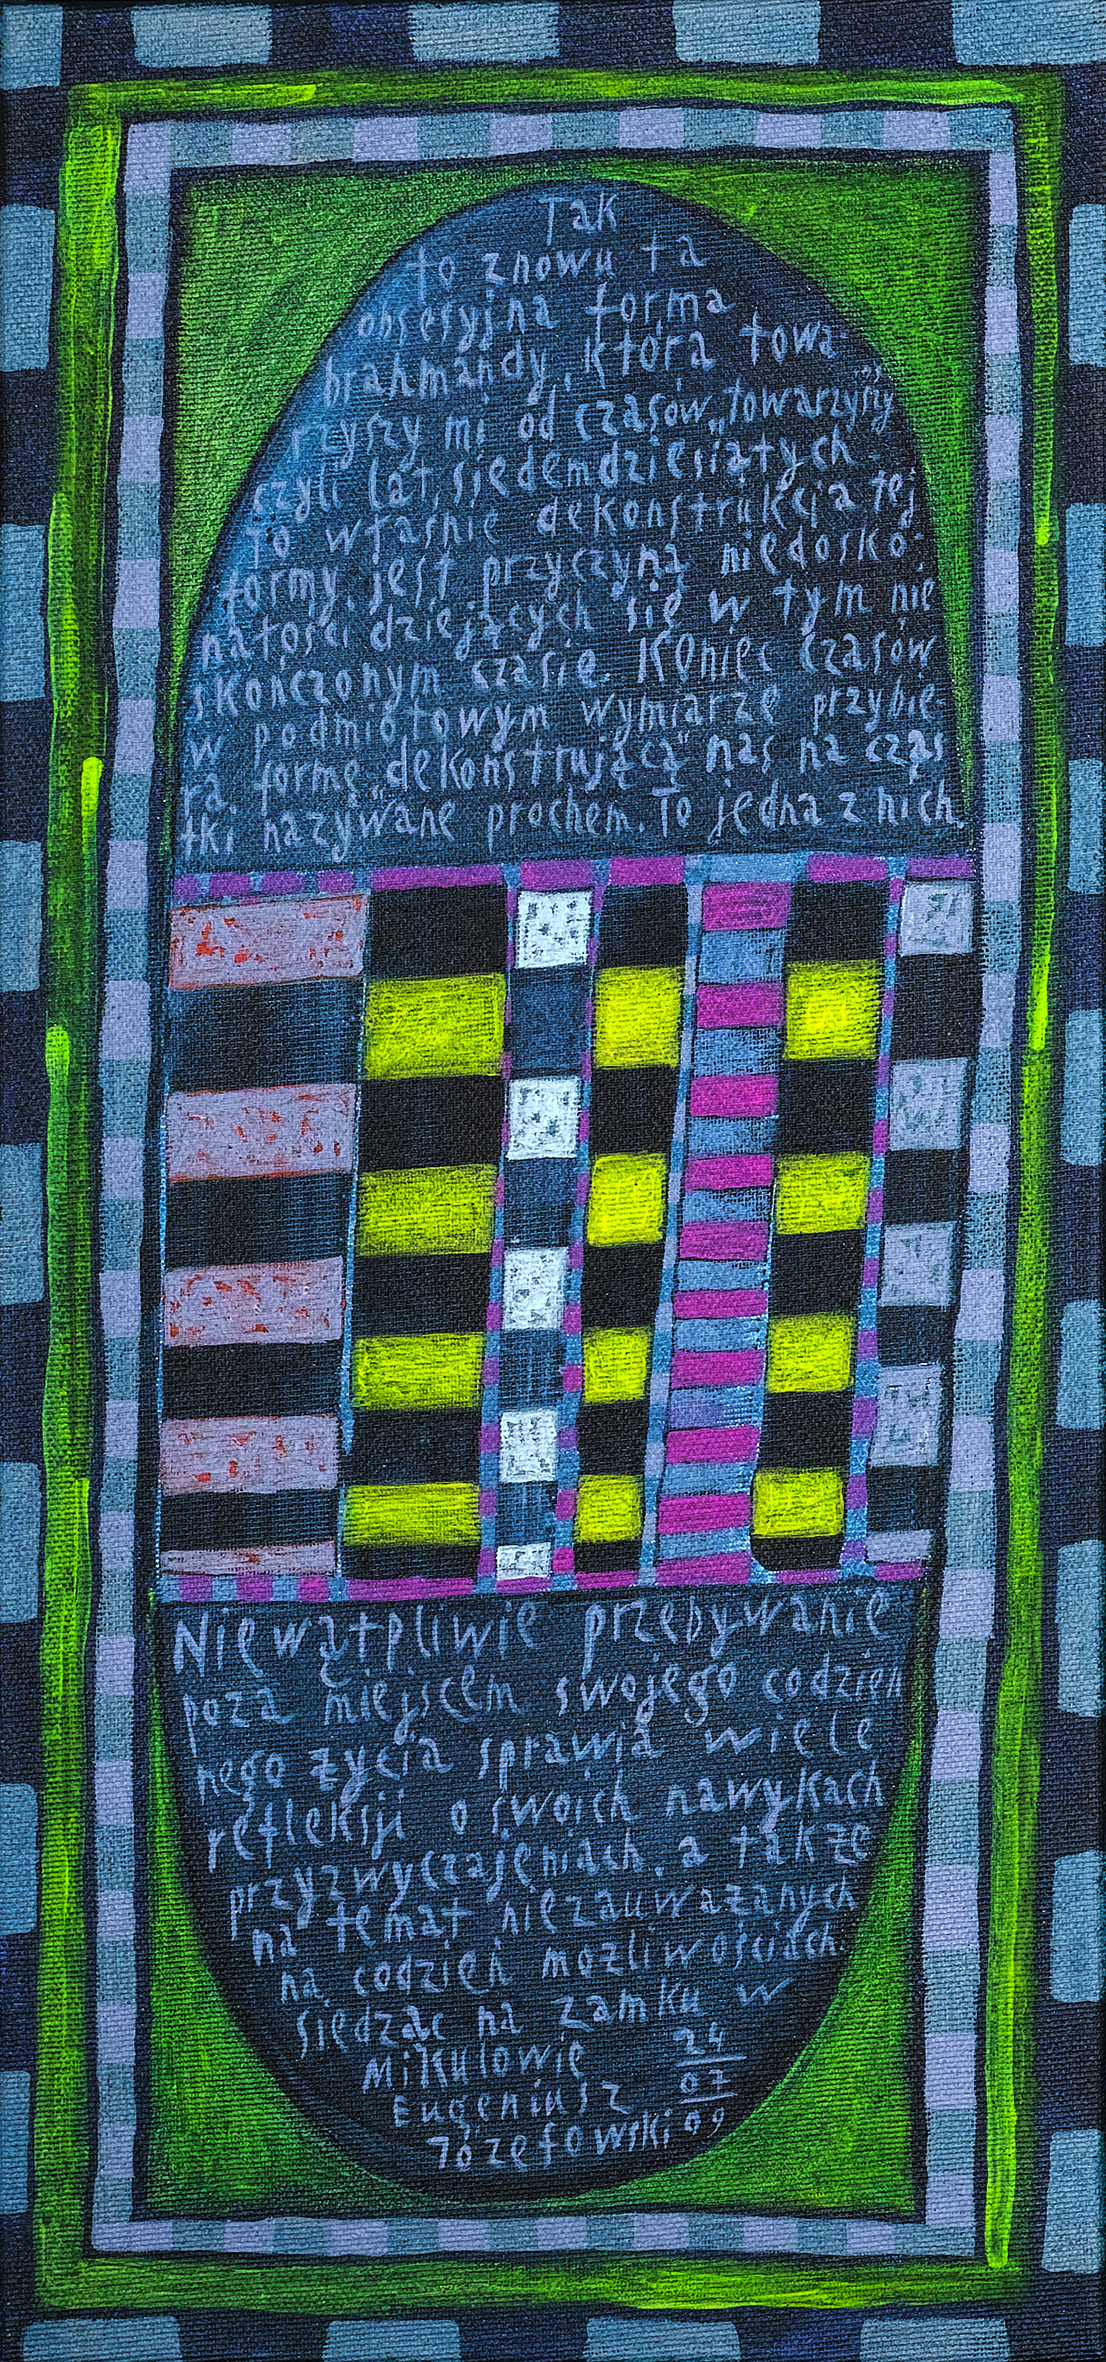 Tak
to znowu ta
obsesyjna forma
brahmandy, która towa-
rzyszy mi od czasów „towarzyszy"
czyli lat siedemdziesiątych.
To właśnie dekonstrukcja tej
formy jest przyczyną niedosko-
nałości dziejących się w tym nie
skończonym czasie. Koniec czasów
w podmiotowym wymiarze przybie-
ra formę „dekonstrującą" nas na cząs
tki nazywane prochem. To jedna z nich.
Niewątpliwie przebywanie
poza miejscem swojego codzien
nego życia sprawia wiele
refleksji o swoich nawykach
przyzwyczajeniach, a także
na temat niezauważanych
na codzień możliwościach.
siedząc na zamku w
Mikulowie 24
Eugeniusz 07
Józefowski 09